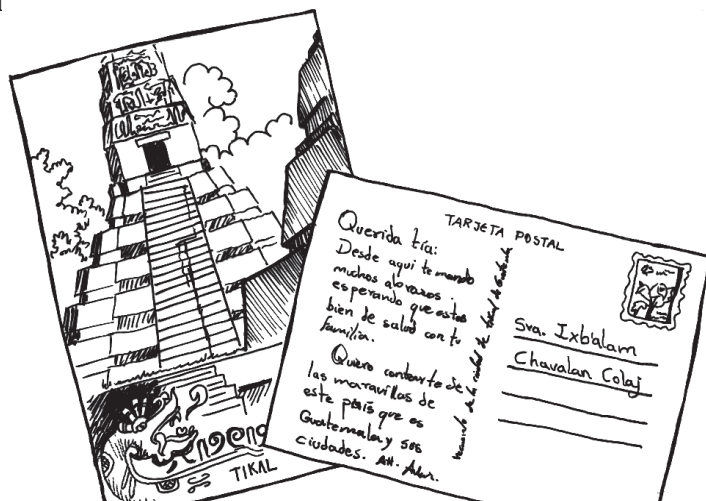 TIKAL
TARJETA POSTAL
Querida tía:
Desde aqui te mando
muchos abrazos.
esperando que estes
bien de salud con tu
familia.
Quiero contarte de
las maravillas de
este país que es
Guatemala y sus
ciudades. Att.
de la ciudad de
Sra. Ixb'alam
Chavalan Colaj